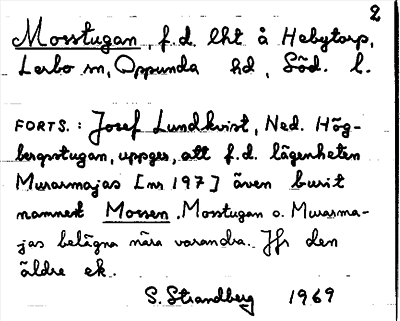 2
Mosstugan, f.d. lht å Hebytorp,
Lerbo sn, Oppunda hd, Söd. l.
FORTS.: Josef Lundkvist, Ned. Hög-
bergsstugan, uppges, att f.d. lägenheten
Murarmajas [nr 197] även burit
namnet Mossen. Mosstugan o. Murarma-
jas belägna nära varandra. Jfr den
äldre ek.
S. Strandberg 1969